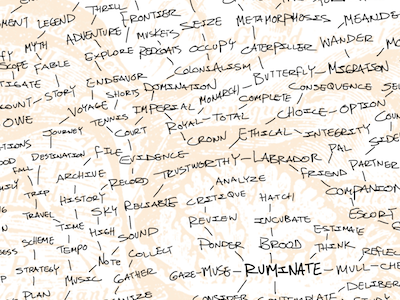 THRILL
FRONTIER
MENT LEGEND
MUSKETS SEIZE METAMORPHOSIS MEANDE
MYTH ADVENTURE
SCOPE FABLE EXPLORE REDCOATS OCCUPY CATERPILLER WANDER
TIGATE STORY ENDEAVOR COLONIALISM
SHORTS DOMINATION BUTTERFLY-MIGRATION
COUNT VOYAGE MONARCHY COMPLETE CONSEQUENCE
OWE TENNIS IMPERIAL
JOURNEY COURT ROYAL-TOTAL CHOICE-OPTION
TIONS CROWN ETHICAL INTEGRITY
DESTINATION FILE EVIDENCE PAL SIDE
FALL TRUSTWORTHY-LABRADOR
ARCHIVE RECORD FRIEND PARTNER
TRIP ANALYZE COMPANION
HISTORY RELIABLE CRITIQUE HATCH
TRAVEL SKY ESCORT
TIME HIGH SOUND REVIEW INCUBATE
SCHEME TEMPO ESTIMATE
NOTE COLLECT PONDER BROOD THINK REFLEC
STRATEGY MUSIC GATHER GAZE-MUSE-RUMINATE-MULL-CHE
PLAN CONSIDER CONTEMPLATE DELIBER